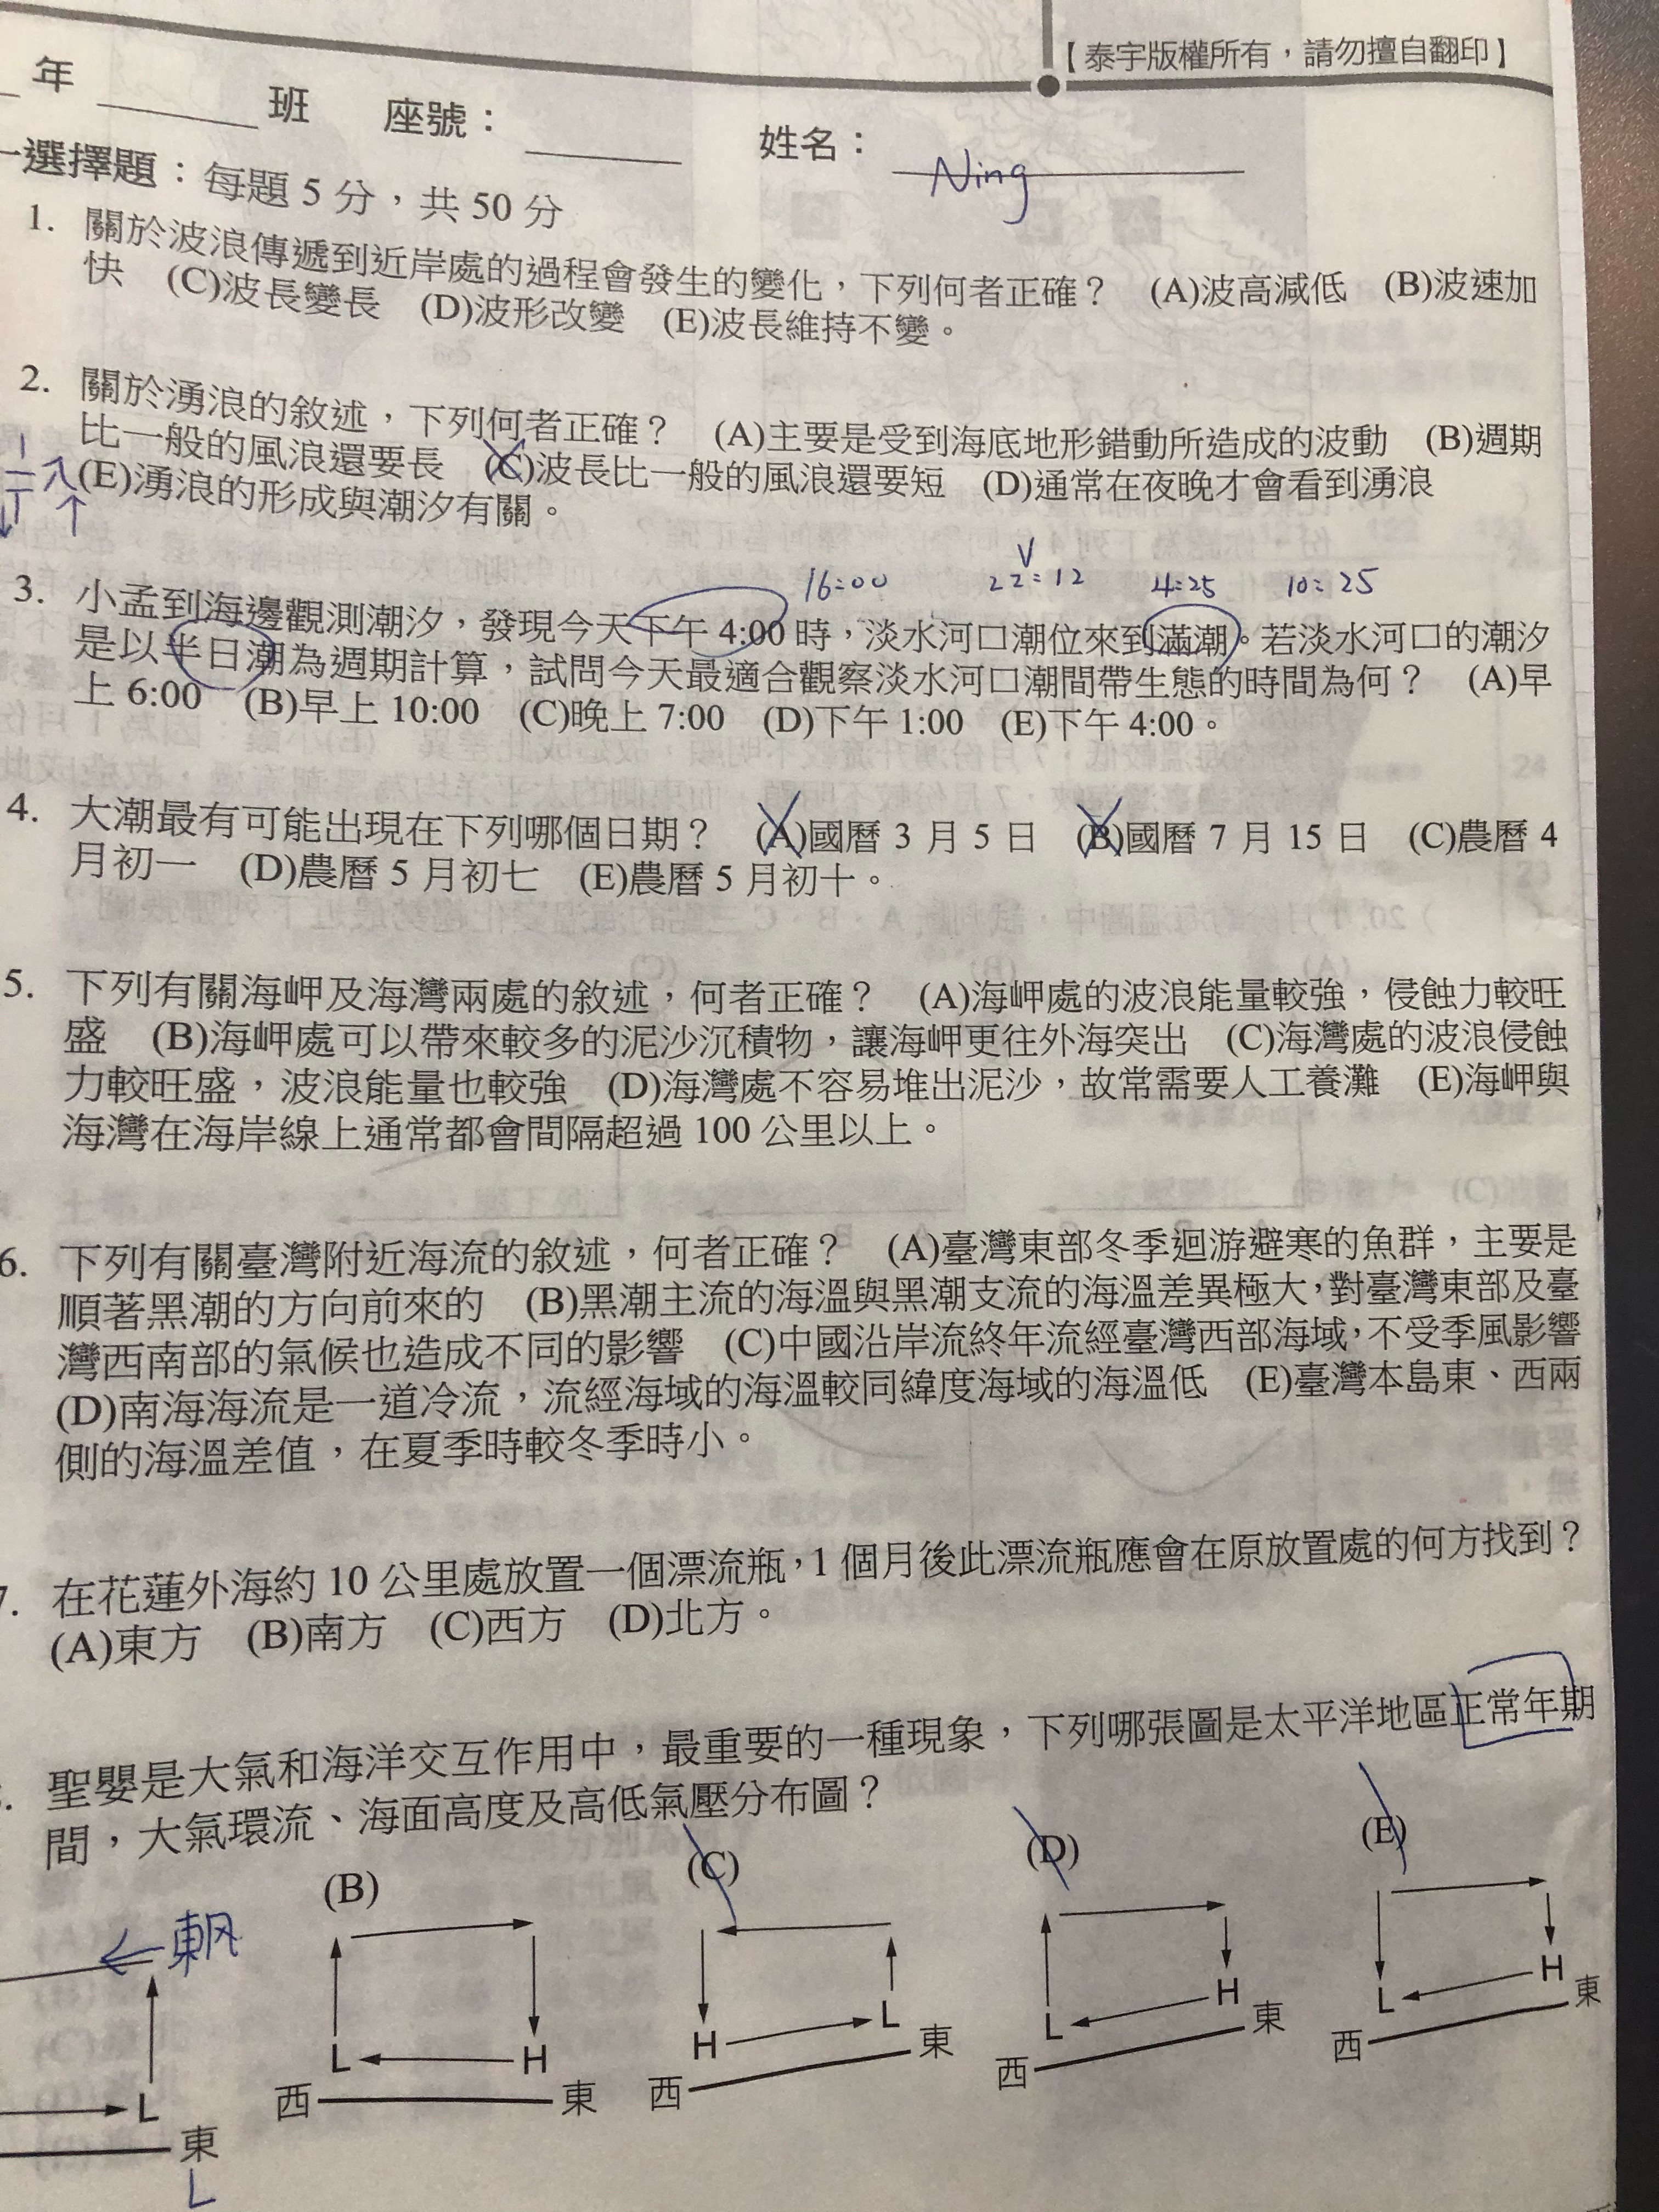 【泰宇版權所有，請勿擅自翻印】
年 班 座號： 姓名： Ning
一選擇題：每題 5 分，共 50 分
1. 關於波浪傳遞到近岸處的過程會發生的變化，下列何者正確？ (A)波高減低 (B)波速加
快 (C)波長變長 (D)波形改變 (E)波長維持不變。
2. 關於湧浪的敘述，下列何者正確？ (A)主要是受到海底地形錯動所造成的波動 (B)週期
比一般的風浪還要長 (C)波長比一般的風浪還要短 (D)通常在夜晚才會看到湧浪
(E)湧浪的形成與潮汐有關。
16:00 22:12 4:25 10:25
3. 小孟到海邊觀測潮汐，發現今天下午 4:00 時，淡水河口潮位來到滿潮。若淡水河口的潮汐
是以半日潮為週期計算，試問今天最適合觀察淡水河口潮間帶生態的時間為何？ (A)早
上 6:00 (B)早上 10:00 (C)晚上 7:00 (D)下午 1:00 (E)下午 4:00。
4. 大潮最有可能出現在下列哪個日期？ (A)國曆 3 月 5 日 (B)國曆 7 月 15 日 (C)農曆 4
月初一 (D)農曆 5 月初七 (E)農曆 5 月初十。
5. 下列有關海岬及海灣兩處的敘述，何者正確？ (A)海岬處的波浪能量較強，侵蝕力較旺
盛 (B)海岬處可以帶來較多的泥沙沉積物，讓海岬更往外海突出 (C)海灣處的波浪侵蝕
力較旺盛，波浪能量也較強 (D)海灣處不容易堆出泥沙，故常需要人工養灘 (E)海岬與
海灣在海岸線上通常都會間隔超過 100 公里以上。
6. 下列有關臺灣附近海流的敘述，何者正確？ (A)臺灣東部冬季迴游避寒的魚群，主要是
順著黑潮的方向前來的 (B)黑潮主流的海溫與黑潮支流的海溫差異極大，對臺灣東部及臺
灣西南部的氣候也造成不同的影響 (C)中國沿岸流終年流經臺灣西部海域，不受季風影響
(D)南海海流是一道冷流，流經海域的海溫較同緯度海域的海溫低 (E)臺灣本島東、西兩
側的海溫差值，在夏季時較冬季時小。
7. 在花蓮外海約 10 公里處放置一個漂流瓶，1 個月後此漂流瓶應會在原放置處的何方找到？
(A)東方 (B)南方 (C)西方 (D)北方。
聖嬰是大氣和海洋交互作用中，最重要的一種現象，下列哪張圖是太平洋地區正常年期
間，大氣環流、海面高度及高低氣壓分布圖？
(B) (C) (D) (E)
東风
L L H H L L H L H
東 西 東 西 東 西 東 西 東
L